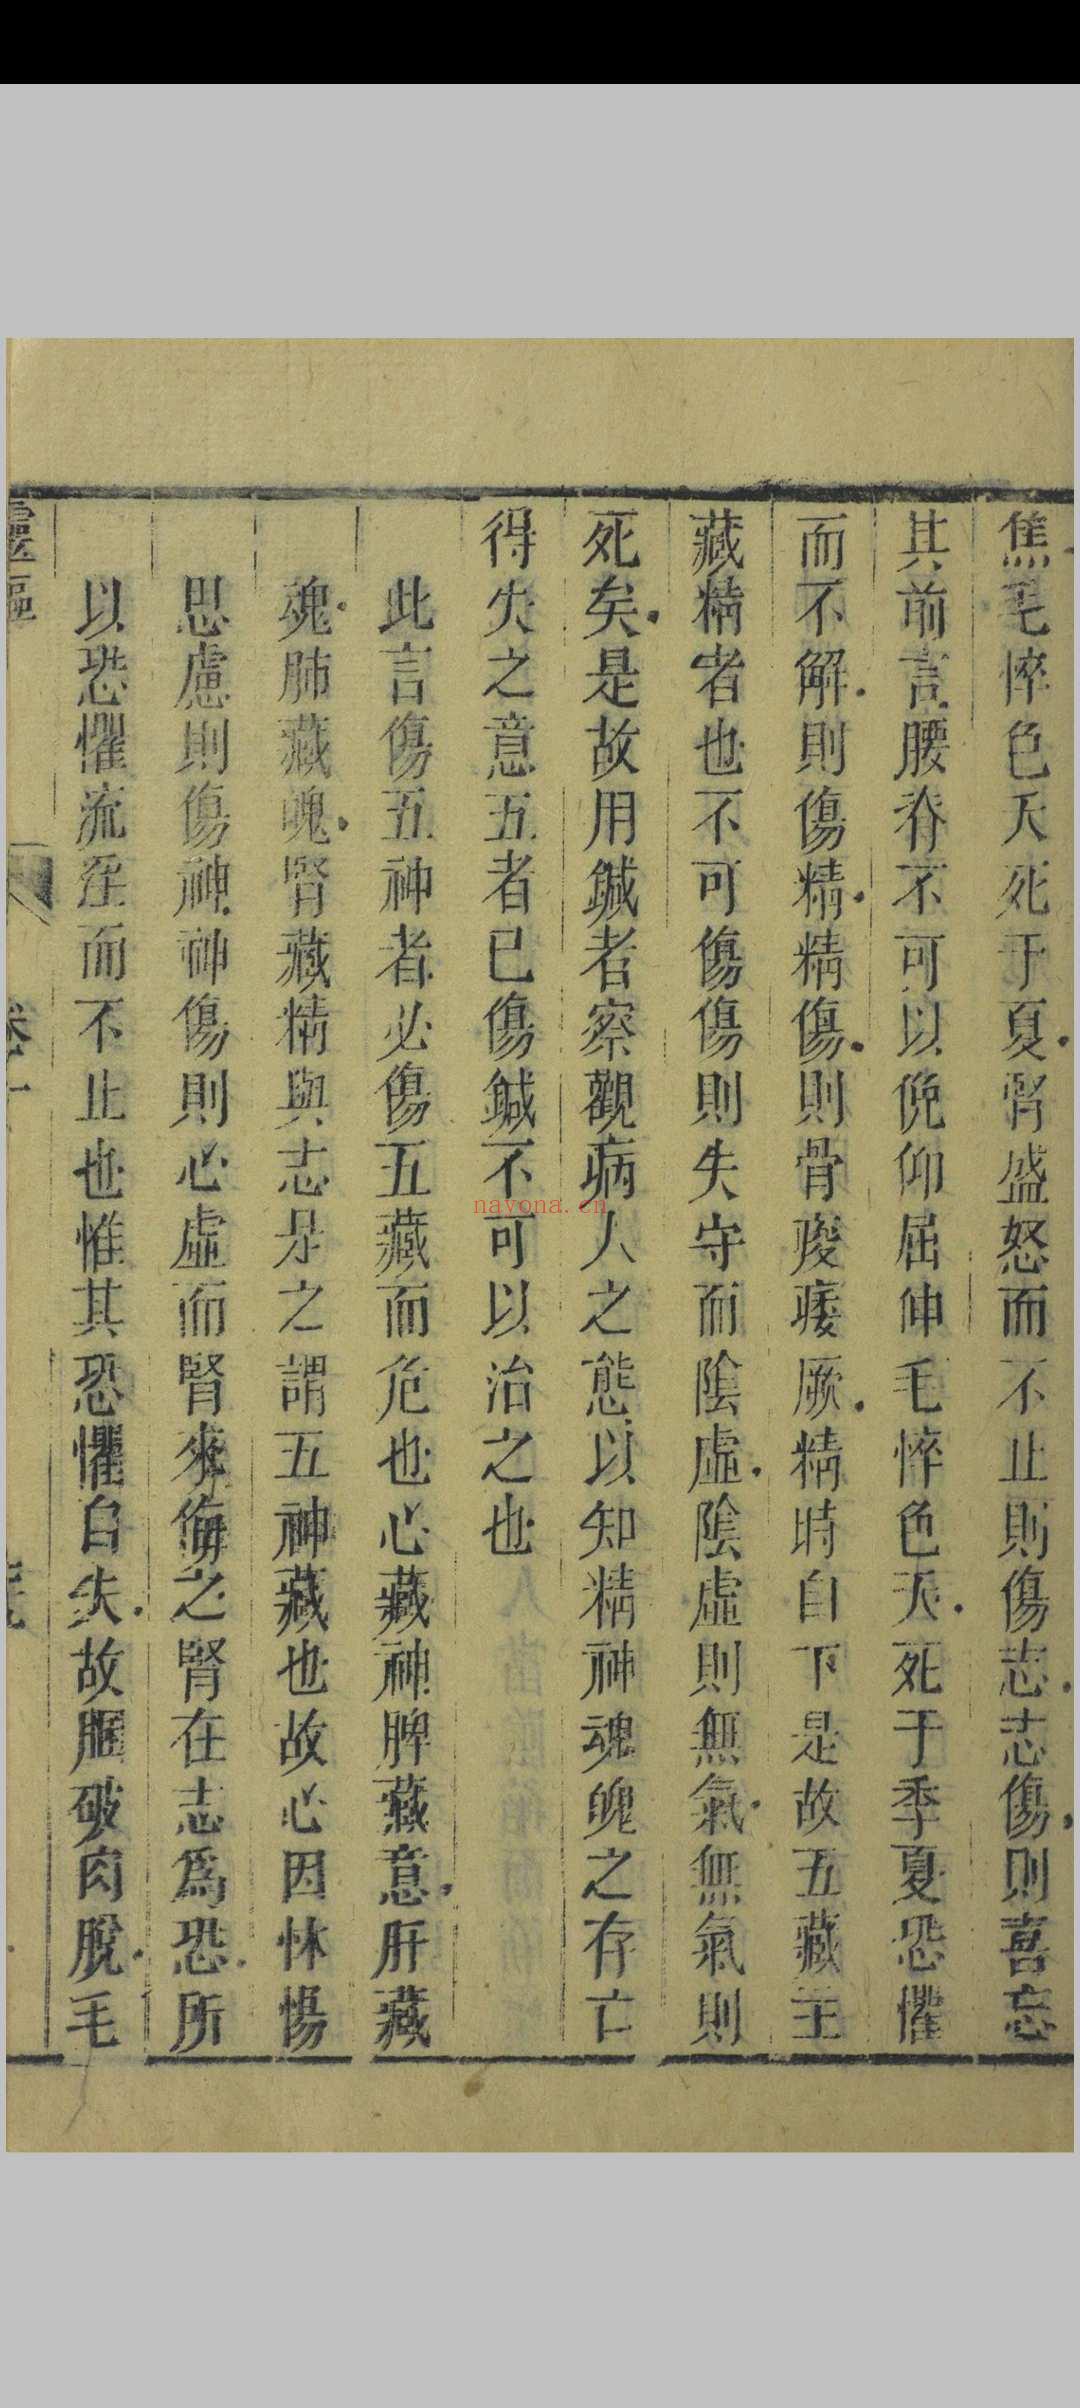 焦毛悴色夭死于夏腎盛怒而不止則傷志志傷則喜忘
其前言腰脊不可以俛仰屈伸毛悴色夭死于季夏恐懼
而不解則傷精精傷則骨痠痿厥精時自下是故五藏主
藏精者也不可傷傷則失守而陰虛陰虛則無氣無氣則
死矣是故用鍼者察觀病人之態以知精神魂魄之存亡
得失之意五者已傷鍼不可以治之也
此言傷五神者必傷五藏而危也心藏神脾藏意肝藏
魂肺藏魄腎藏精與志是之謂五神藏也故心因怵惕
思慮則傷神神傷則心虛而腎來侮之腎在志爲恐所
以恐懼流淫而不止也惟其恐懼自失故䐃破肉脫毛
靈樞
卷十
navona.cn